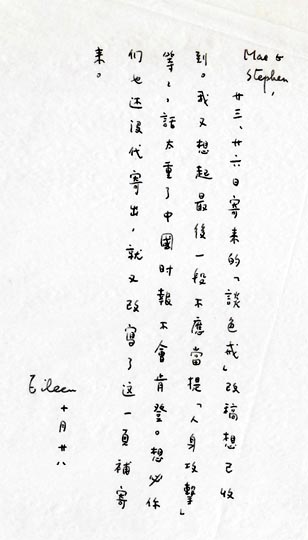 Mae &
Stephen,
廿三、廿六日寄来的「談色戒」改稿想已收
到。我又想起最後一段不應當提「人身攻擊」
等々，話太重了中國时報不會肯登。想必你
们也还没代寄出，就又改寫了这一頁補寄
来。
Eileen
十月廿八